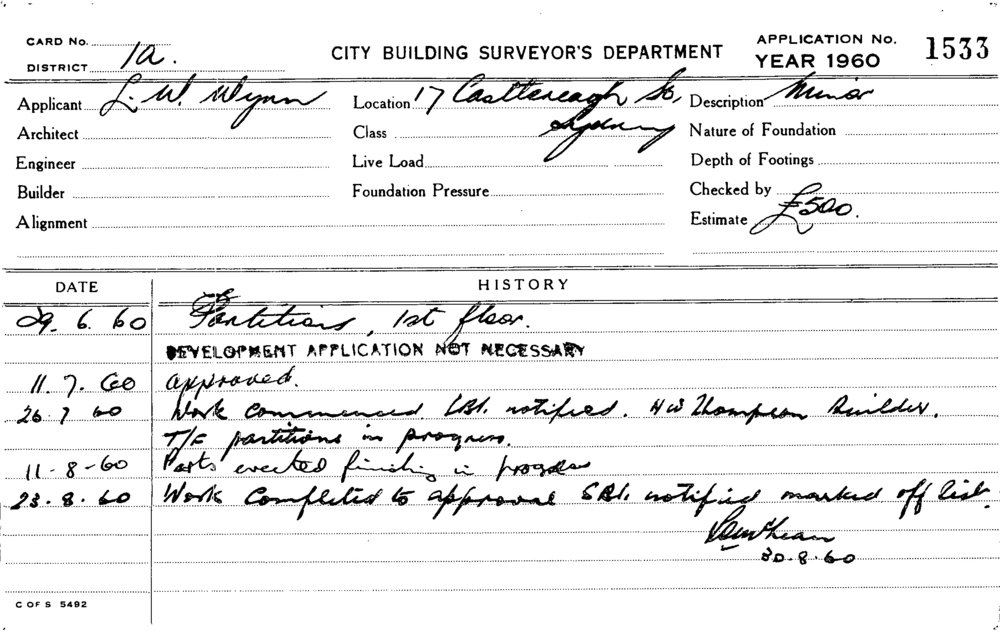 CARD No.
DISTRICT 1a.
CITY BUILDING SURVEYOR'S DEPARTMENT
APPLICATION No. 1533
YEAR 1960
Applicant L. W. Wynn
Location 17 Castlereagh St, Sydney
Description Minor
Architect
Class
Nature of Foundation
Engineer
Live Load
Depth of Footings
Builder
Foundation Pressure
Checked by
Alignment
Estimate £500.
DATE HISTORY
29. 6. 60 Partitions, 1st floor.
DEVELOPMENT APPLICATION NOT NECESSARY
11. 7. 60 approved.
26. 7 60 Work commenced. notified. H W Thompson Builder.
T/F partitions in progress.
11-8-60 Parts erected finishing in progress
23. 8. 60 Work Completed to approval notified marked off list.
30.8.60
C OF S 5492